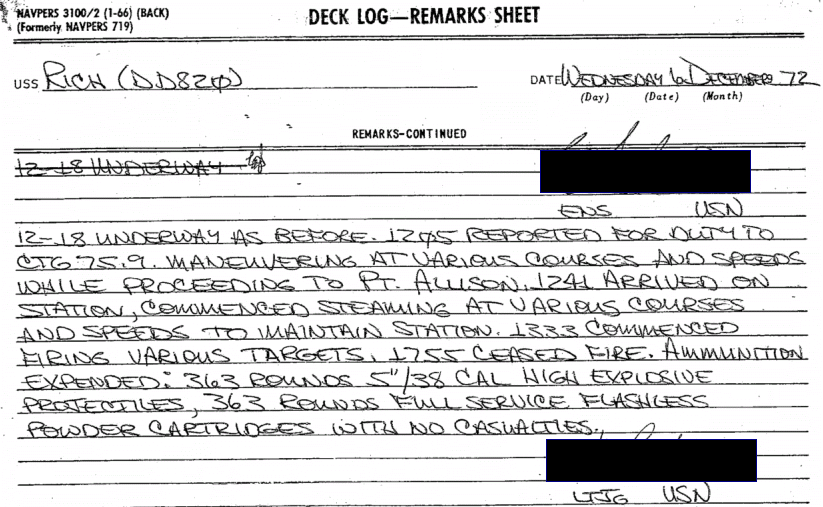 NAVPERS 3100/2 (1-66) (BACK)
(Formerly NAVPERS 719)
DECK LOG—REMARKS SHEET
USS RICH (DD820)
DATE WEDNESDAY 6 DECEMBER 72
(Day) (Date) (Month)
REMARKS-CONTINUED
12-18 UNDERWAY
ENS USN
12-18 UNDERWAY AS BEFORE. 1205 REPORTED FOR DUTY TO
CTG 75.9. MANEUVERING AT VARIOUS COURSES AND SPEEDS
WHILE PROCEEDING TO PT. ALLISON. 1241 ARRIVED ON
STATION, COMMENCED STEAMING AT VARIOUS COURSES
AND SPEEDS TO MAINTAIN STATION. 1333 COMMENCED
FIRING VARIOUS TARGETS. 1755 CEASED FIRE. AMMUNITION
EXPENDED: 363 ROUNDS 5"/38 CAL HIGH EXPLOSIVE
PROJECTILES, 363 ROUNDS FULL SERVICE FLASHLESS
POWDER CARTRIDGES WITH NO CASUALTIES.
LTJG USN